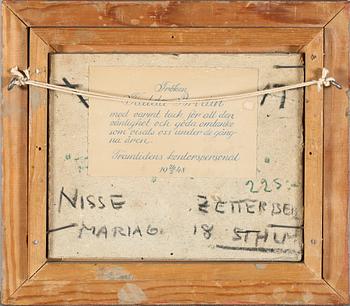 Fröken
med varmt tack för all den
vänlighet och goda omtanke
som visats oss under de gång-
na åren.
Framtidens kontorspersonal
19 48
225:-
NISSE ZETTERBER
MARIAG. 18 STHLM